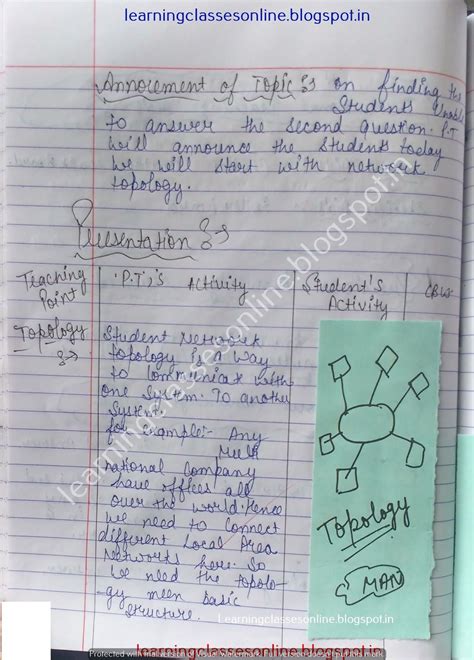 learningclassesonline.blogspot.in
Annoucement of Topic :→ on finding the
Students unable
to answer the second question. P.T
will announce the students today
we will start with network
topology.
Presentation :→
Teaching
Point
P.T,'s Activity
Student's
Activity
CBW
Topology
:→
Student Network
topology is a way
to communicate with
one system. To another
System.
for Example:- Any
Multi
national company
have offices all
over the world. Hence
we need to connect
different Local Area
networks here. So
we need the topolo-
gy meen basic
structure.
Topology
MAN
learningclassesonline.blogspot.in
Learningclassesonline.blogspot.in
learningclassesonline.blogspot.in